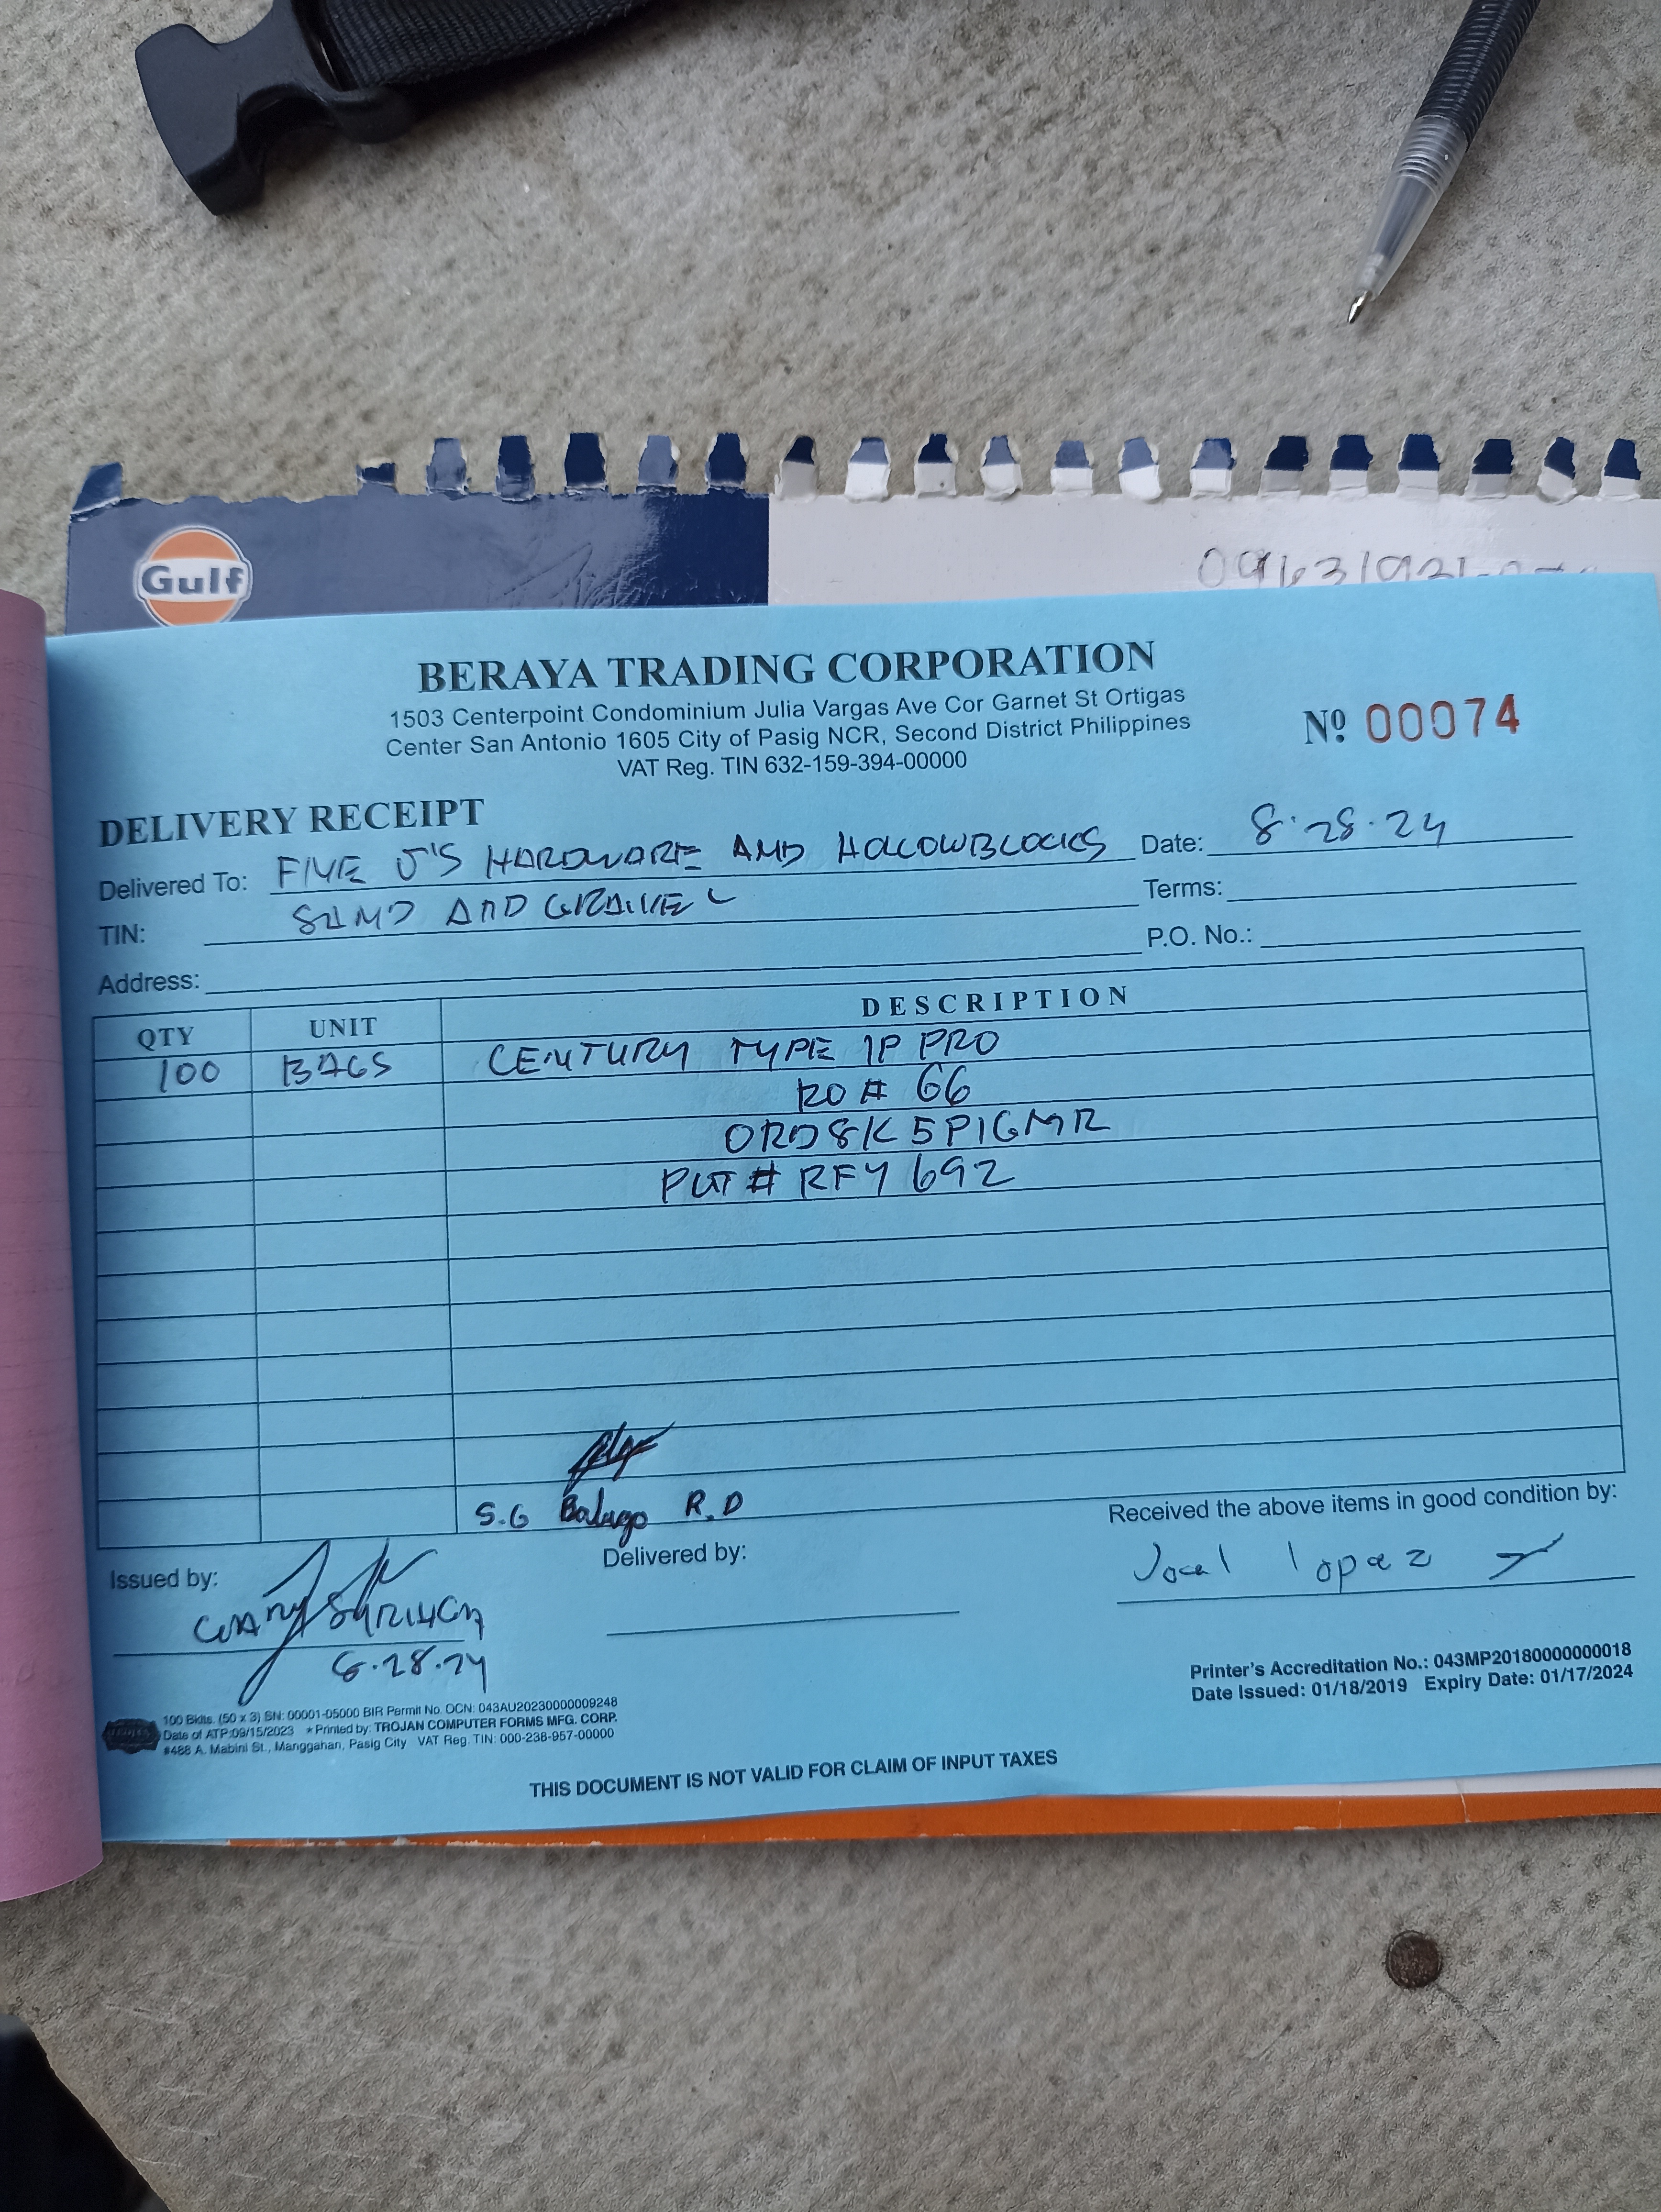 Gulf
BERAYA TRADING CORPORATION
1503 Centerpoint Condominium Julia Vargas Ave Cor Garnet St Ortigas
Center San Antonio 1605 City of Pasig NCR, Second District Philippines
VAT Reg. TIN 632-159-394-00000
Nº 00074
DELIVERY RECEIPT
Delivered To: FIVE J'S HARDWARE AND HOLLOWBLOCKS Date: 8.28.24
TIN: SAND AND GRAVEL Terms:
Address: P.O. No.:
QTY UNIT DESCRIPTION
100 BAGS CENTURY TYPE 1P PRO
RO # 66
ORD8K5P1GMR
PLT # RFY 692
S.G Balugo R.D
Issued by: Delivered by: Received the above items in good condition by:
Jocel lopez
8.28.24
Printer's Accreditation No.: 043MP20180000000018
Date Issued: 01/18/2019 Expiry Date: 01/17/2024
100 Bklts. (50 x 3) SN: 00001-05000 BIR Permit No. OCN: 043AU20230000009248
Date of ATP:09/15/2023 *Printed by: TROJAN COMPUTER FORMS MFG. CORP.
#488 A. Mabini St., Manggahan, Pasig City VAT Reg. TIN: 000-238-957-00000
THIS DOCUMENT IS NOT VALID FOR CLAIM OF INPUT TAXES